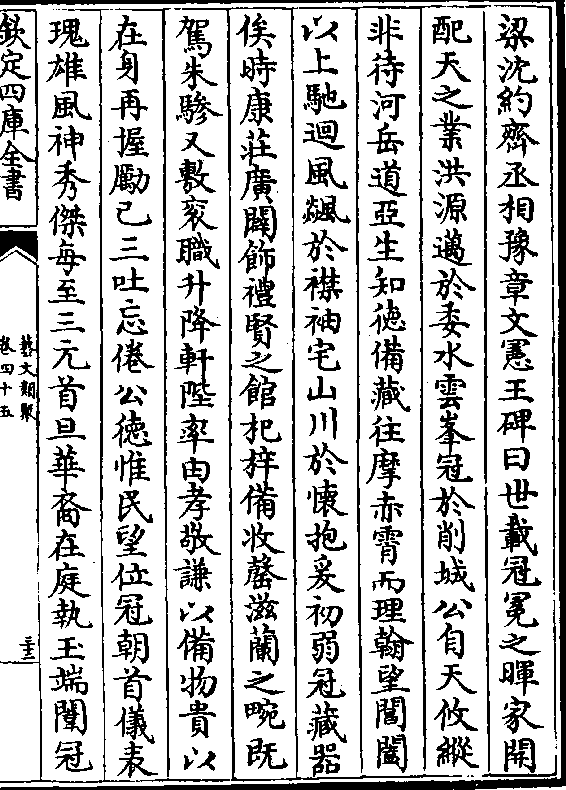 梁沈約齊丞相豫章文憲王碑曰世載冠冕之暉家開
配天之業洪源邁於委水雲峯冠於削城公自天攸縱
非待河岳道亞生知德備藏往摩赤霄而理翰望閶闔
以上馳迴風飈於襟袖宅山川於懷抱爰初弱冠藏器
俟時康莊廣闢飾禮賢之館杞梓備收罄滋蘭之畹既
駕朱驂又敷衮職升降軒陛率由孝敬謙以備物貴以
在身再握勵己三吐忘倦公德惟民望位冠朝首儀表
瑰雄風神秀傑每至三元首旦華裔在庭執玉端闈冠
欽定四庫全書
藝文類聚
卷四十五